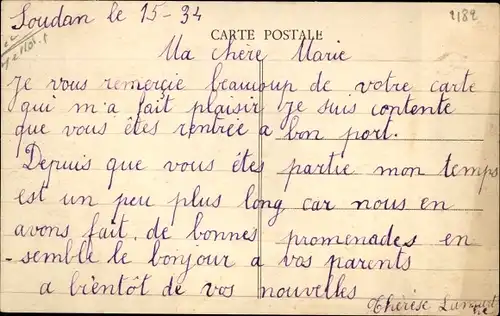 Soudan le 15-34
2182
CARTE POSTALE
Ma chère Marie
Je vous remerçie beaucoup de votre carte
qui m'a fait plaisir je suis contente
que vous êtes rentrée a bon port.
Depuis que vous êtes partie mon temps
est un peu plus long car nous en
avons fait de bonnes promenades en
-semble le bonjour a vos parents
a bientôt de vos nouvelles
Thérèse